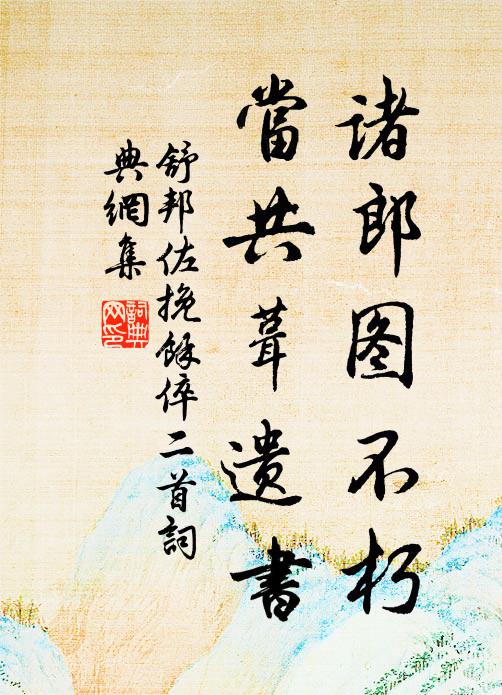 諸郎图不朽
當共葺遺書
舒邦佐挽餘倅二首詞
典網集
詞典
网印